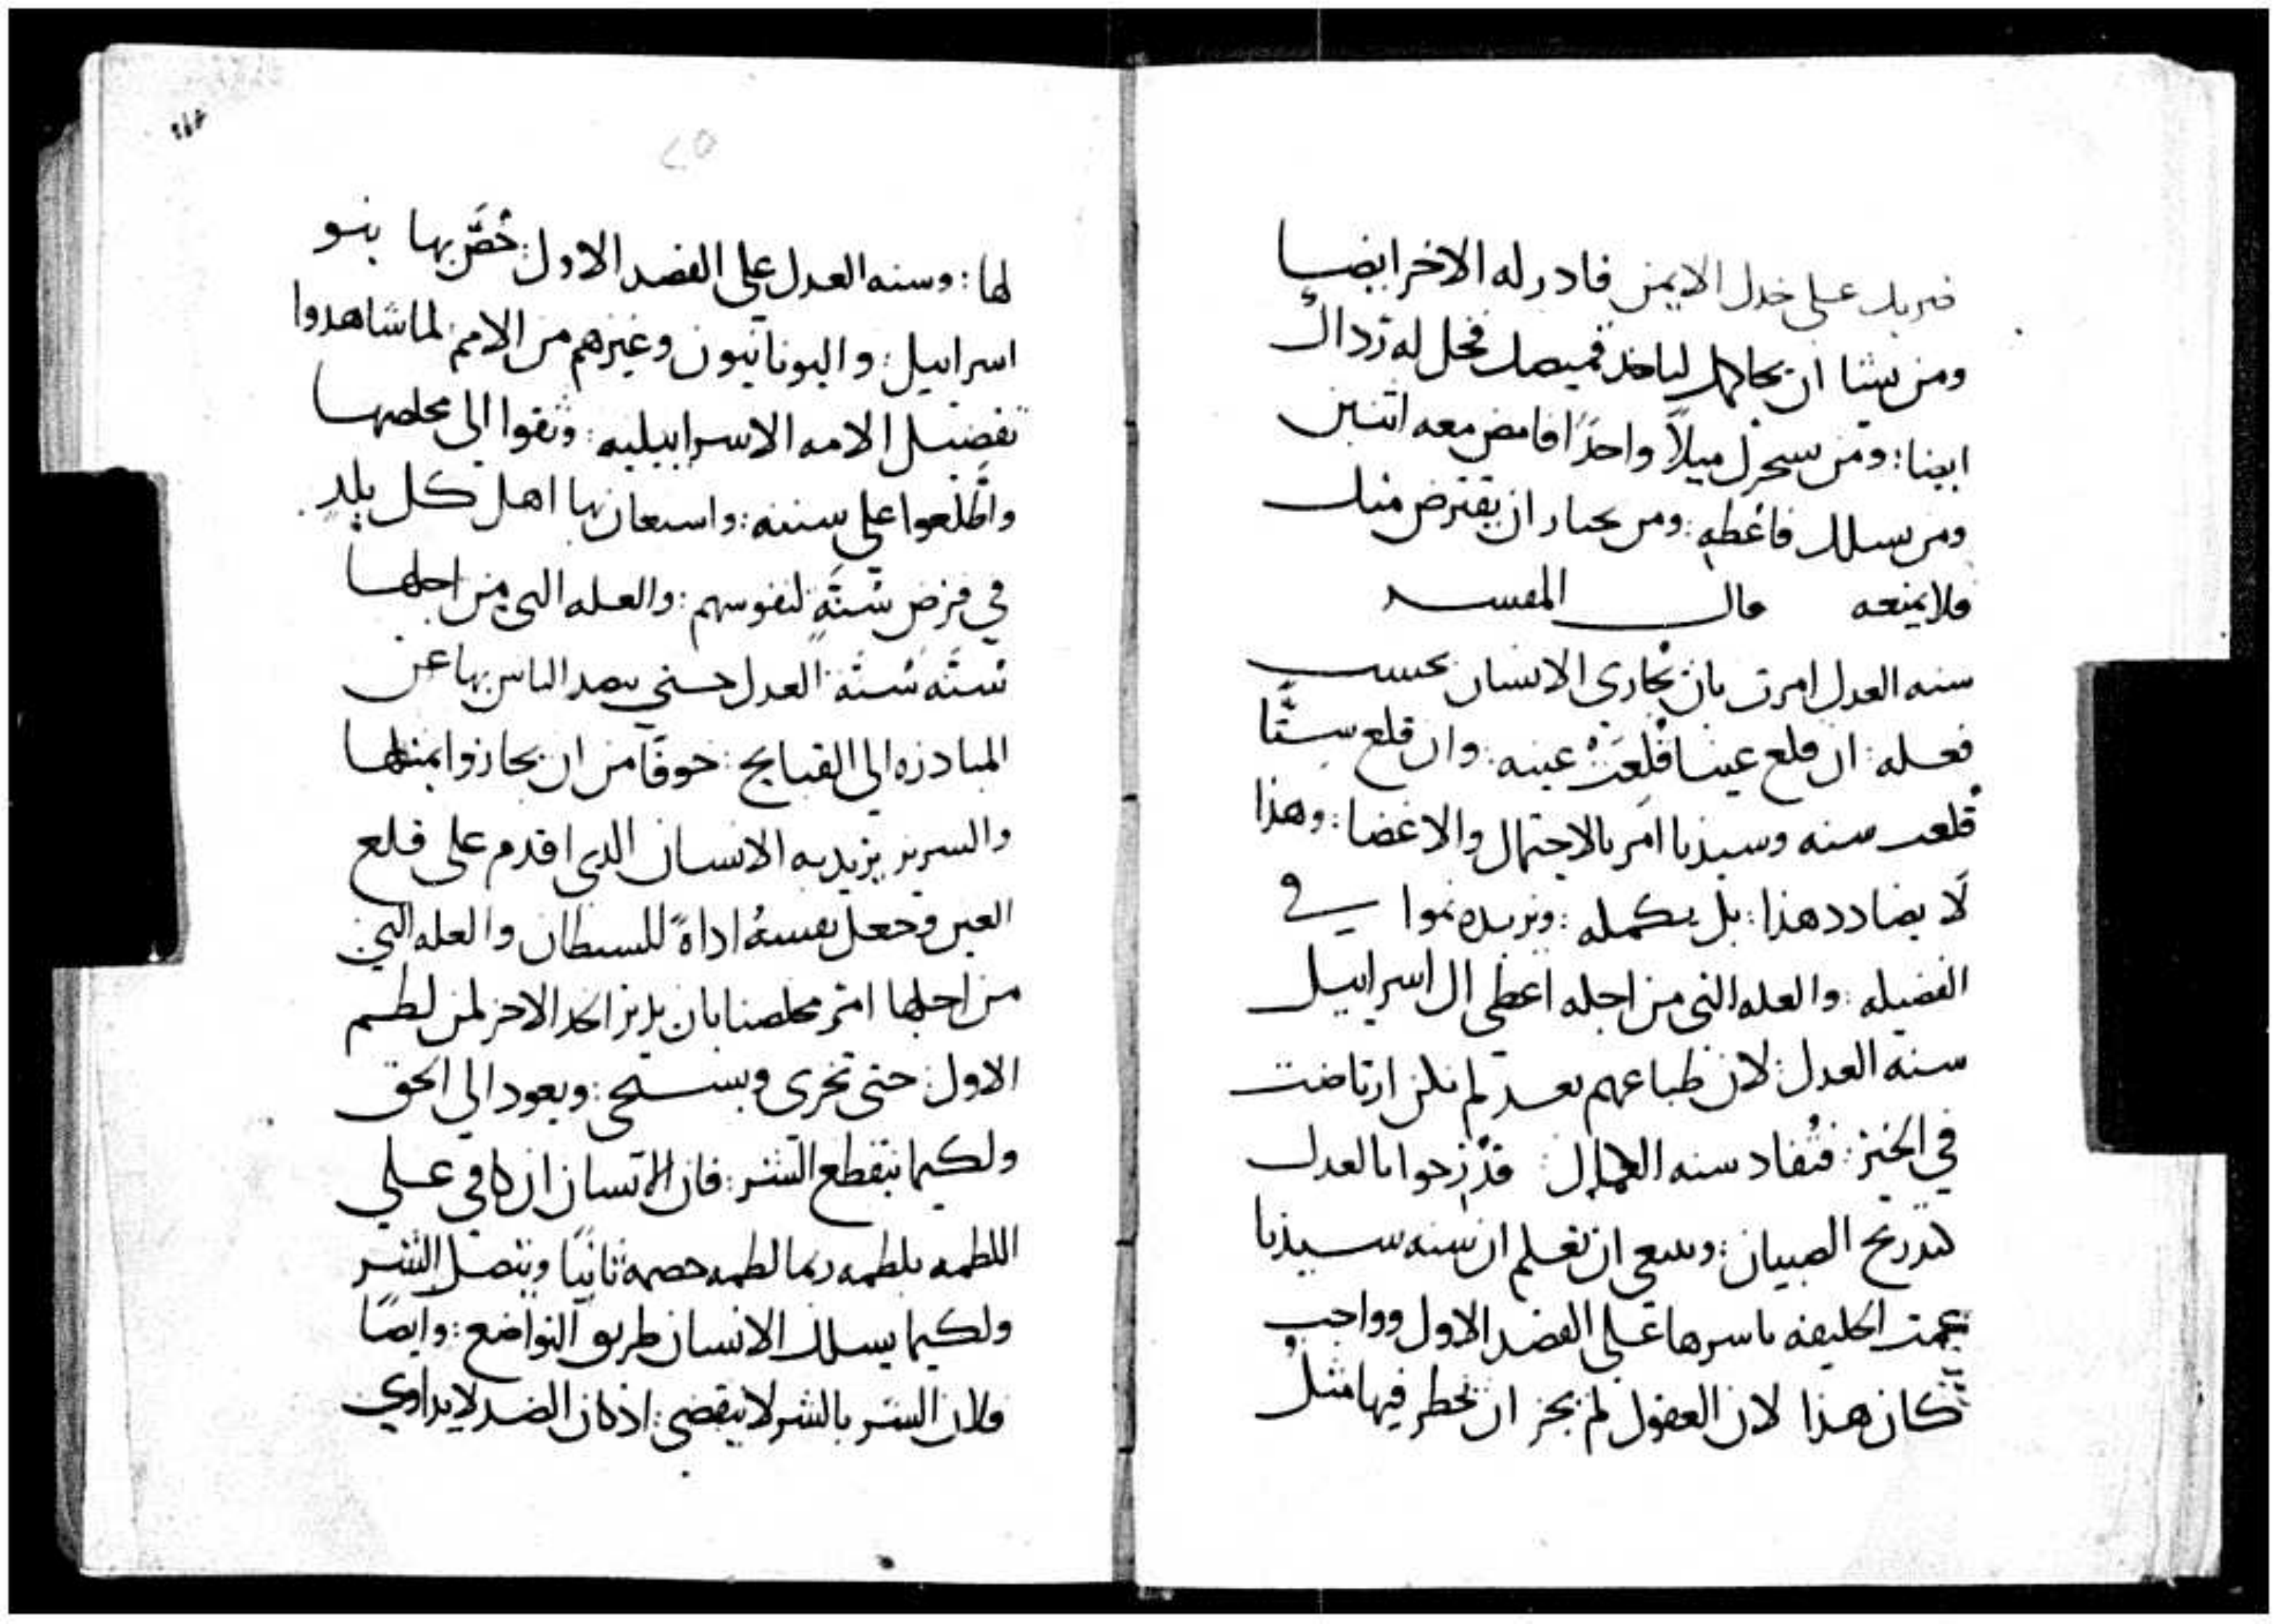 ضربك على خدك الايمن فادر له الاخر ايضا
ومن يشا ان يحاكمك لياخذ قميصك فخل له رداك
ايضا: ومن سخرك ميلاً واحدًا فامض معه اتنين
ومن سالك فاعطه: ومن يختار ان يقترض منك
فلا يمنعه قال المفسر
سنه العدل امرت بان يجازى الانسان بحسب
فعله: ان قلع عينا قُلِعَتْ عينه: وان قلع سنًّا
قلعت سنه وسيدنا امر بالاحتمال والاغضا: وهذا
لا يضادد هذا: بل يكمله: ويزيده نموا في
الفضيله: والعله التي من اجله اعطى ال اسراييل
سنه العدل: لان طباعهم بعد لم تكن ارتاضت
في الخير: فتفاد سنه الكمال قدرجوا بالعدل
كتدريج الصبيان: وينبغي ان تعلم ان سنه سيدنا
عمت الخليقه باسرها على القصد الاول وواجب
كان هذا لان العقول لم يجز ان يخطر فيها مثل
٢٥
لها: وسنه العدل على القصد الاول: خُصَّ بها بنو
اسراييل: واليونانيون وغيرهم من الامم لما شاهدوا
تفضيل الامه الاسراييليه: وثقوا الى مخلصها
واطَّلعوا على سننه: واستعان بها اهل كل بلدٍ
في فرض سُنَّهٍ لنفوسهم: والعله التي من اجلها
سُنَّه سُنَّه العدل حتى يصد الناس بها عن
المبادره الى القبايح: خوفًا من ان يجازوا بمثلها
والشرير يريد به الانسان الذى اقدم على قلع
العين وجعل نفسهُ اداةً للشيطان والعله التي
من اجلها امر مخلصنا بان يدير الخد الاخر لمن لطم
الاول: حتى تخزى ويستحى: ويعود الى الحق
ولكيما ينقطع الشر: فان الانسان ان كافى على
اللطمه بلطمه ربما لطمه خصمه ثانيًا ويتصل الشر
ولكيما يسلك الانسان طريق التواضع: وايضًا
فلان الشر بالشر لا ينقضي: اذ كان الضد لا يداوي